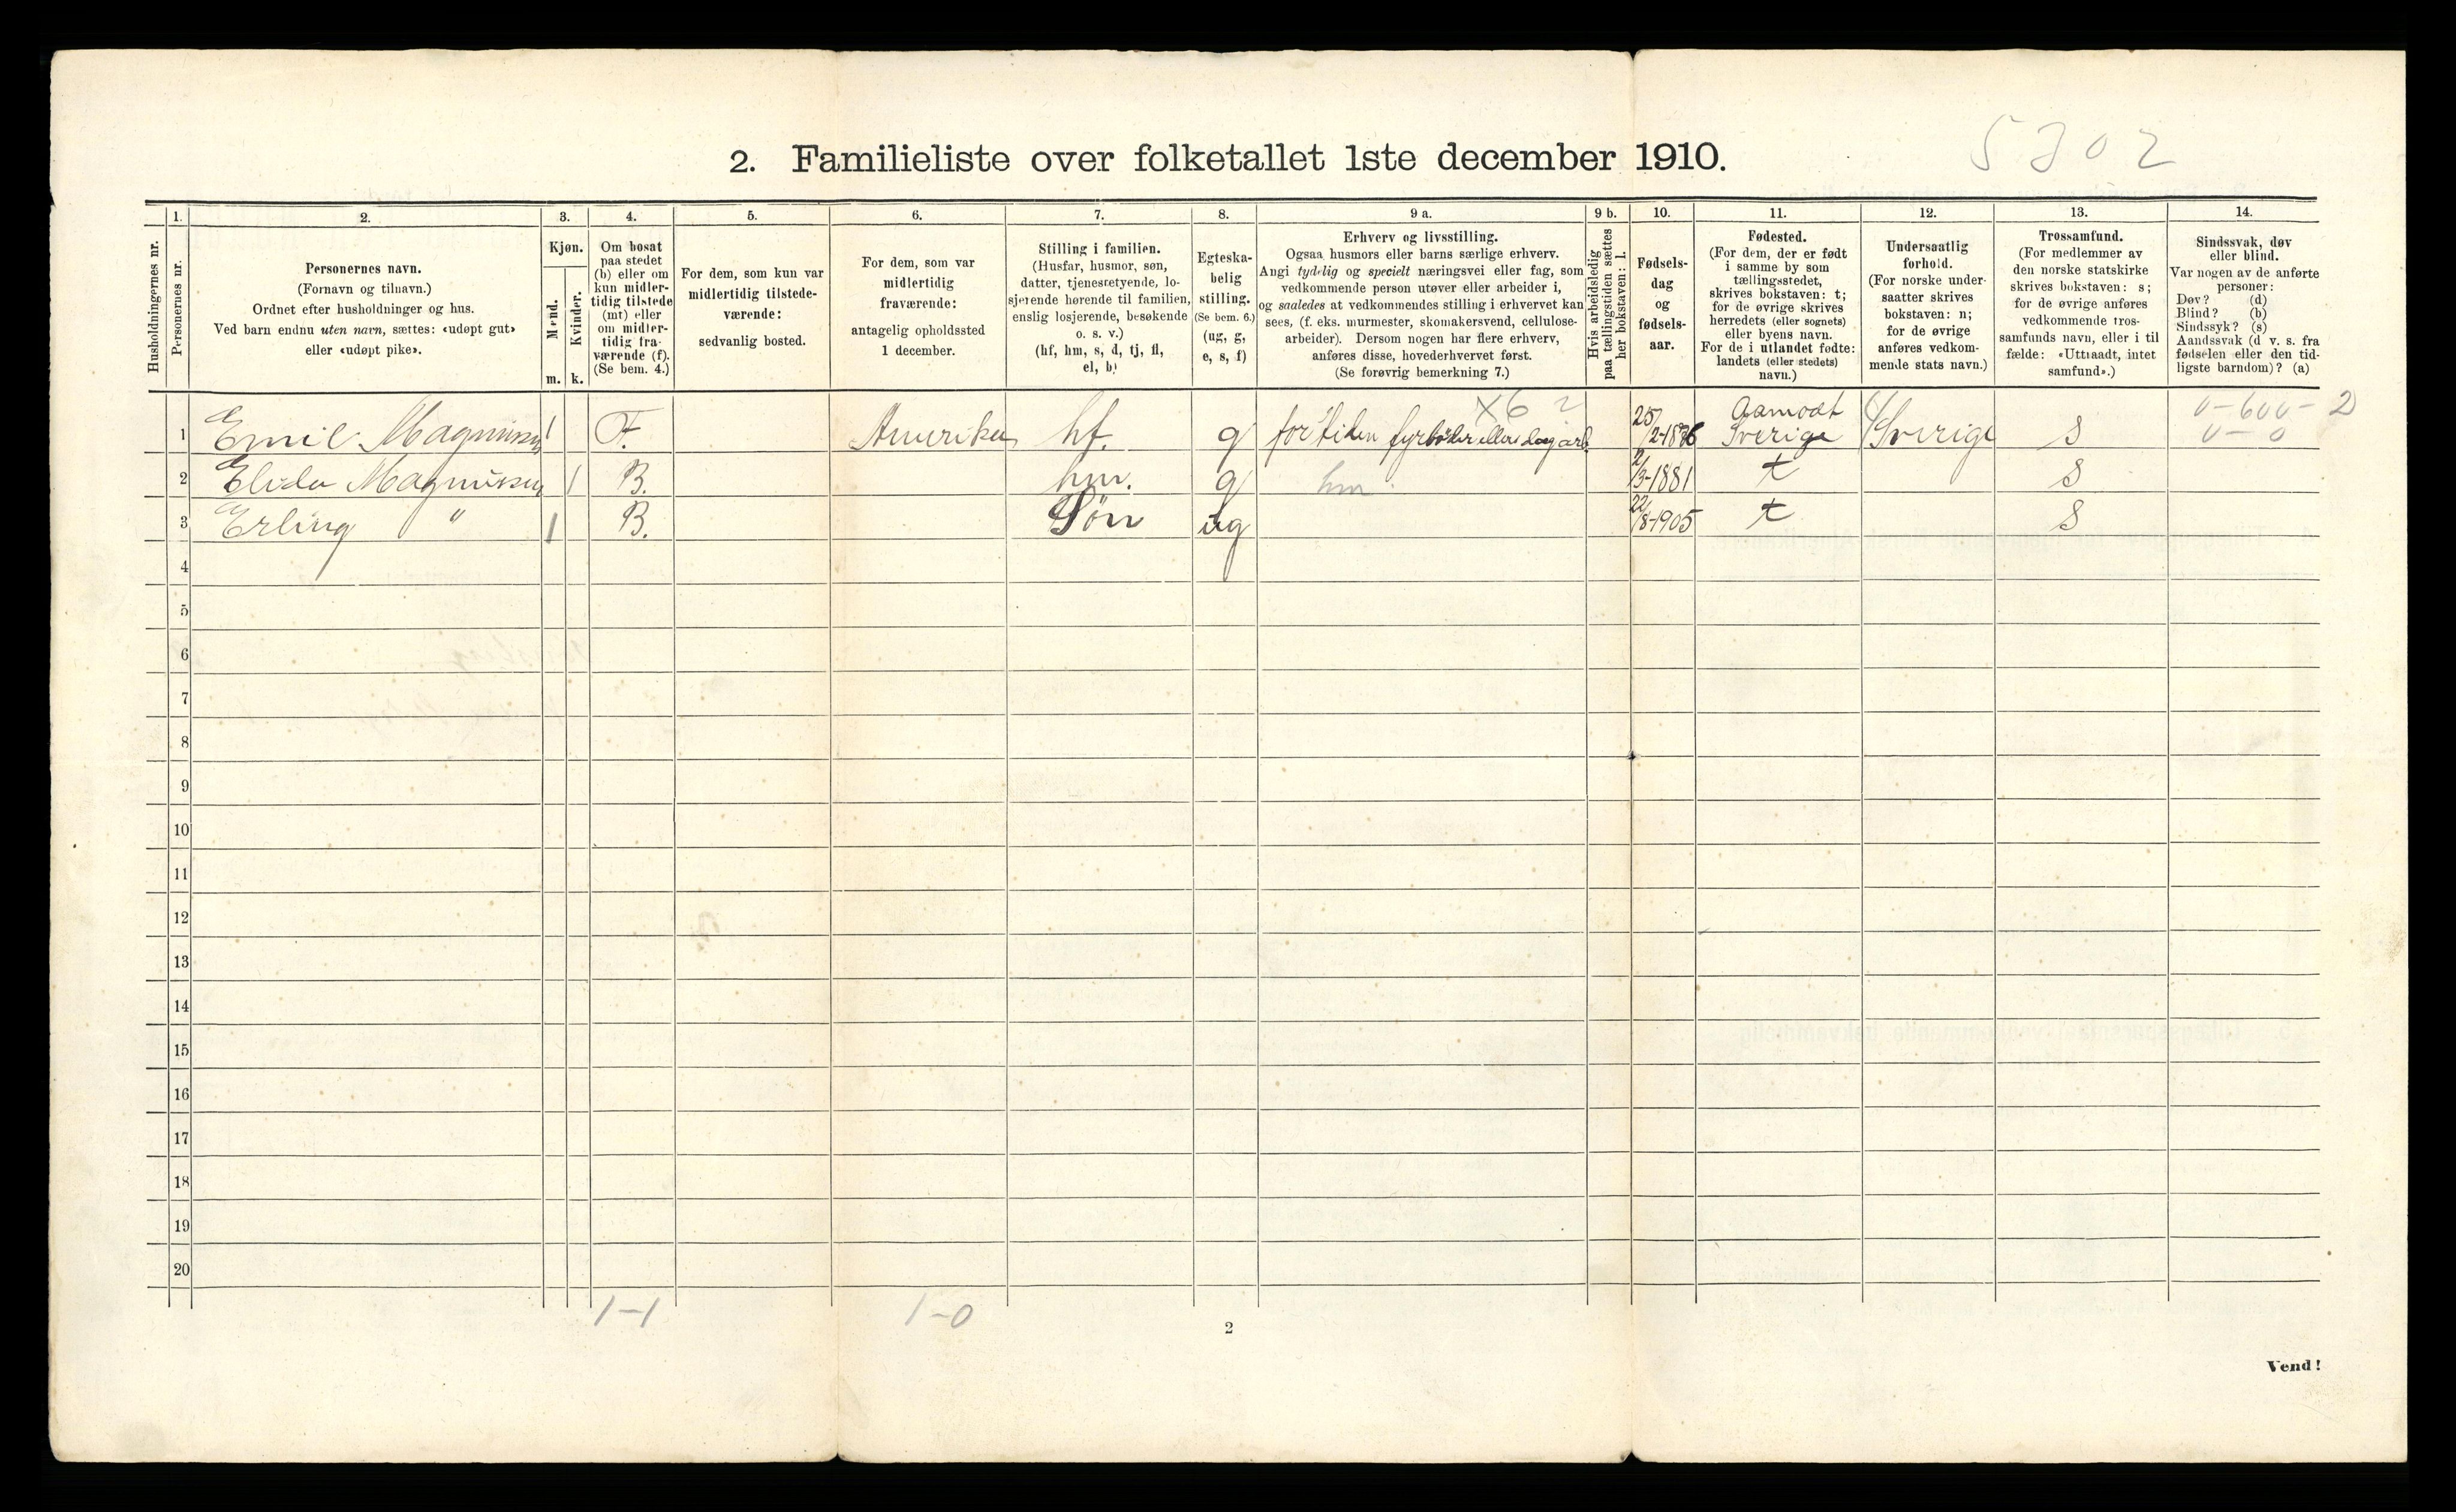 5302
2. Familieliste over folketallet 1ste december 1910.
1. 2. 3. 4. 5. 6. 7. 8. 9 a. 9 b. 10. 11. 12. 13. 14.
Husholdningernes nr.
Personernes nr.
Personernes navn.
(Fornavn og tilnavn.)
Ordnet efter husholdninger og hus.
Ved barn endnu uten navn, sættes: «udøpt gut»
eller «udøpt pike».
Kjøn.
Mænd.
Kvinder.
m. k.
Om bosat
paa stedet
(b) eller om
kun midler-
tidig tilstede
(mt) eller
om midler-
tidig fra-
værende (f).
(Se bem. 4.)
For dem, som kun var
midlertidig tilstede-
værende:
sedvanlig bosted.
For dem, som var
midlertidig
fraværende:
antagelig opholdssted
1 december.
Stilling i familien.
(Husfar, husmor, søn,
datter, tjenesretyende, lo-
sjerende hørende til familien,
enslig losjerende, besøkende
o. s. v.)
(hf, hm, s, d, tj, fl,
el, b)
Egteska-
belig
stilling.
(Se bem. 6.)
(ug, g,
e, s, f)
Erhverv og livsstilling.
Ogsaa husmors eller barns særlige erhverv.
Angi tydelig og specielt næringsvei eller fag, som
vedkommende person utøver eller arbeider i,
og saaledes at vedkommendes stilling i erhvervet kan
sees, (f. eks. murmester, skomakersvend, cellulose-
arbeider). Dersom nogen har flere erhverv,
anføres disse, hovederhvervet først.
(Se forøvrig bemerkning 7.)
Hvis arbeidsledig
paa tællingstiden sættes
her bokstaven: l.
Fødsels-
dag
og
fødsels-
aar.
Fødested.
(For dem, der er født
i samme by som
tællingsstedet,
skrives bokstaven: t;
for de øvrige skrives
herredets (eller sognets)
eller byens navn.
For de i utlandet fødte:
landets (eller stedets)
navn.)
Undersaatlig
forhold.
(For norske under-
saatter skrives
bokstaven: n;
for de øvrige
anføres vedkom-
mende stats navn.)
Trossamfund.
(For medlemmer av
den norske statskirke
skrives bokstaven: s;
for de øvrige anføres
vedkommende tros-
samfunds navn, eller i til
fælde: «Uttraadt, intet
samfund».)
Sindssvak, døv
eller blind.
Var nogen av de anførte
personer:
Døv? (d)
Blind? (b)
Sindssyk? (s)
Aandssvak (d v. s. fra
fødselen eller den tid-
ligste barndom)? (a)
X6 2 Aamodt 0-600-2
1 Emil Magnusen 1 F. Amerika hf. g for tiden fyrbøder ellers dag arb. 25/2-1876 Sverige Sverige s 0-0
2 Elida Magnusen 1 B. hm. g hm 2/3-1881 t s
3 Erling " 1 B. Søn ug 22/8-1905 t s
4
5
6
7
8
9
10
11
12
13
14
15
16
17
18
19
20
1-1 1-0
2
Vend!